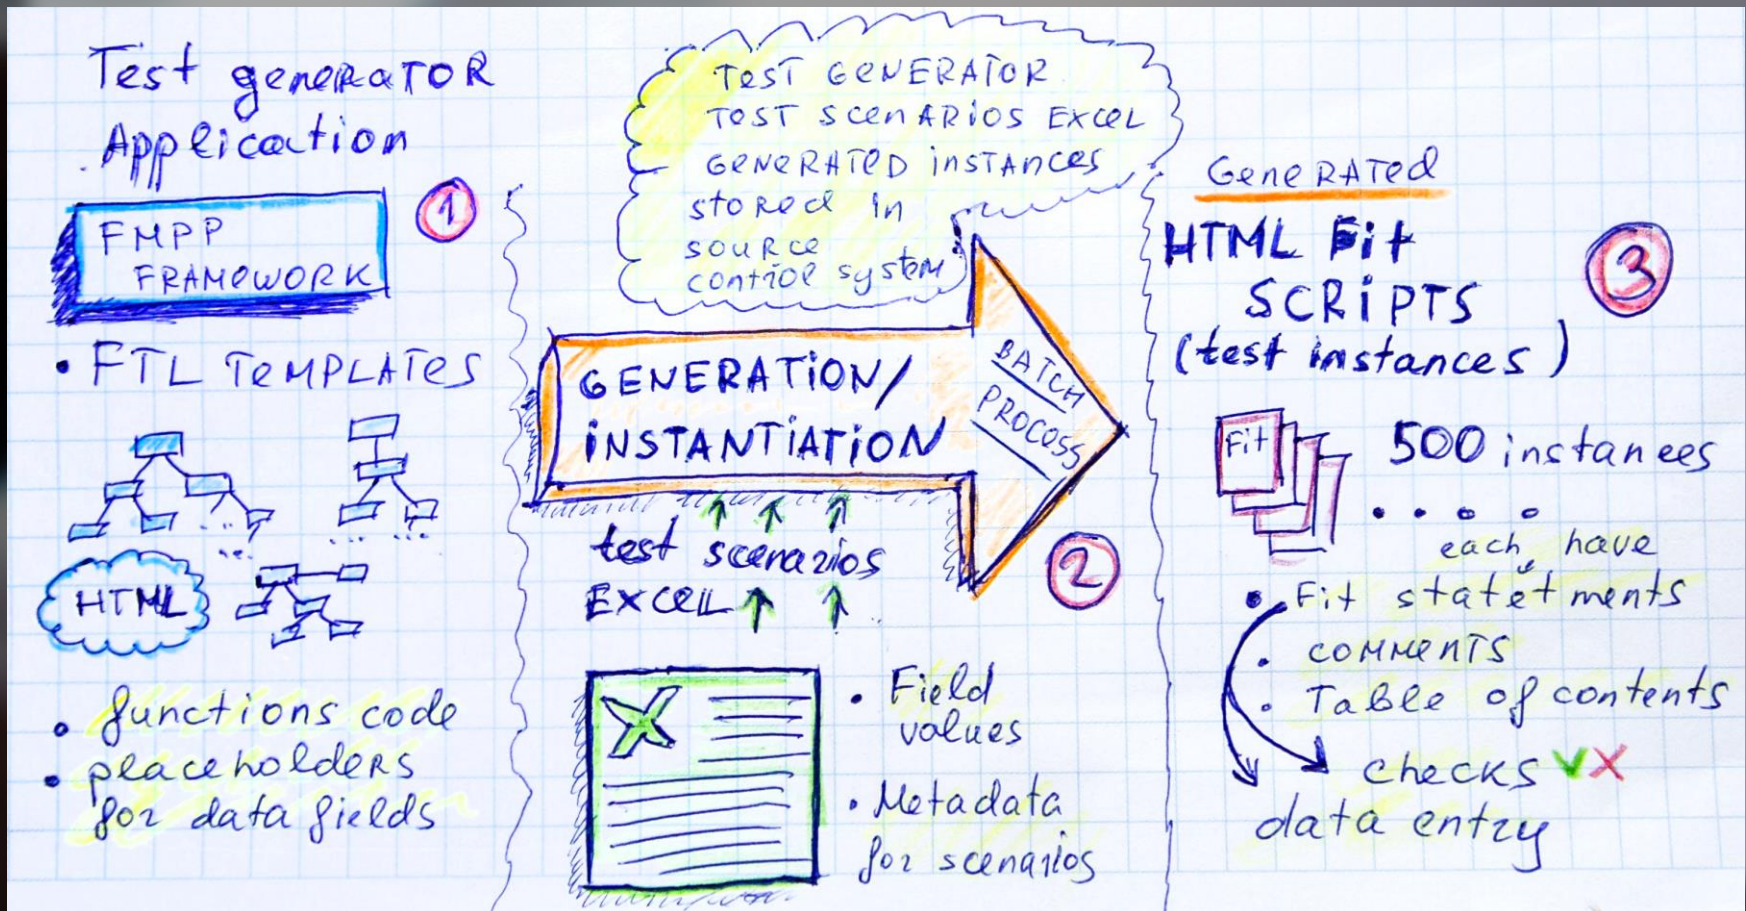 Test generator
Application
1
FMPP
FRAMEWORK
• FTL TEMPLATES
... ...
...
HTML
• functions code
• placeholders
for data fields
TEST GENERATOR
TEST SCENARIOS EXCEL
GENERATED INSTANCES
stored in
source
control system
GENERATION/
INSTANTIATION
BATCH
PROCESS
2
test scenarios
EXCEL
X
• Field
values
• Metadata
for scenarios
Generated
HTML Fit
SCRIPTS
(test instances)
3
Fit
500 instances
. . . .
each have
• Fit statetments
• comments
• Table of contents
checks V X
data entry